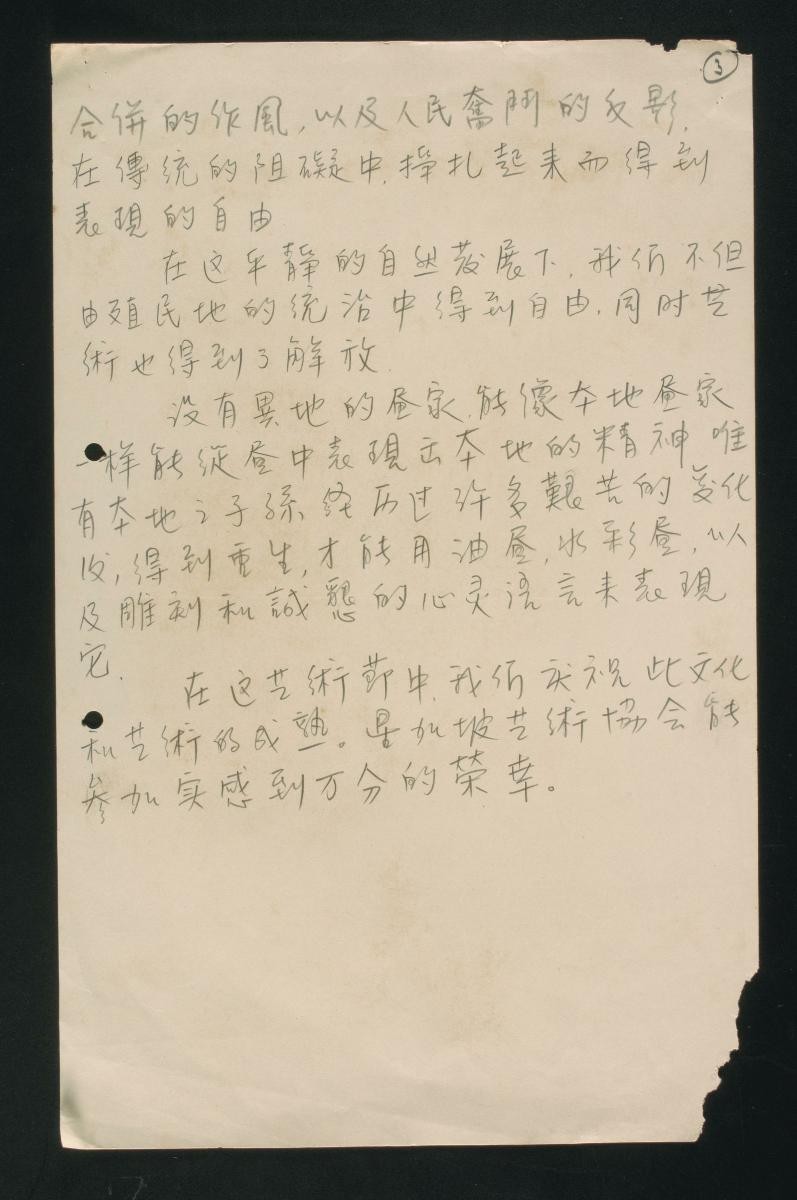 3
合併的作風,以及人民奮鬥的反影,
在傳統的阻礙中,掙扎起来而得到
表現的自由
在这平靜的自然發展下,我们不但
由殖民地的統治中得到自由,同时艺
術也得到了解放.
没有異地的画家,能像本地画家
一样能從画中表現出本地的精神唯
有本地之子孫経历过许多艱苦的变化
後,得到重生,才能用油画,水彩画,以
及雕刻和誠懇的心灵语言来表現
它.
在这艺術節中,我们庆祝此文化
和艺術的成熟。星加坡艺術協会能
参加实感到万分的榮幸。